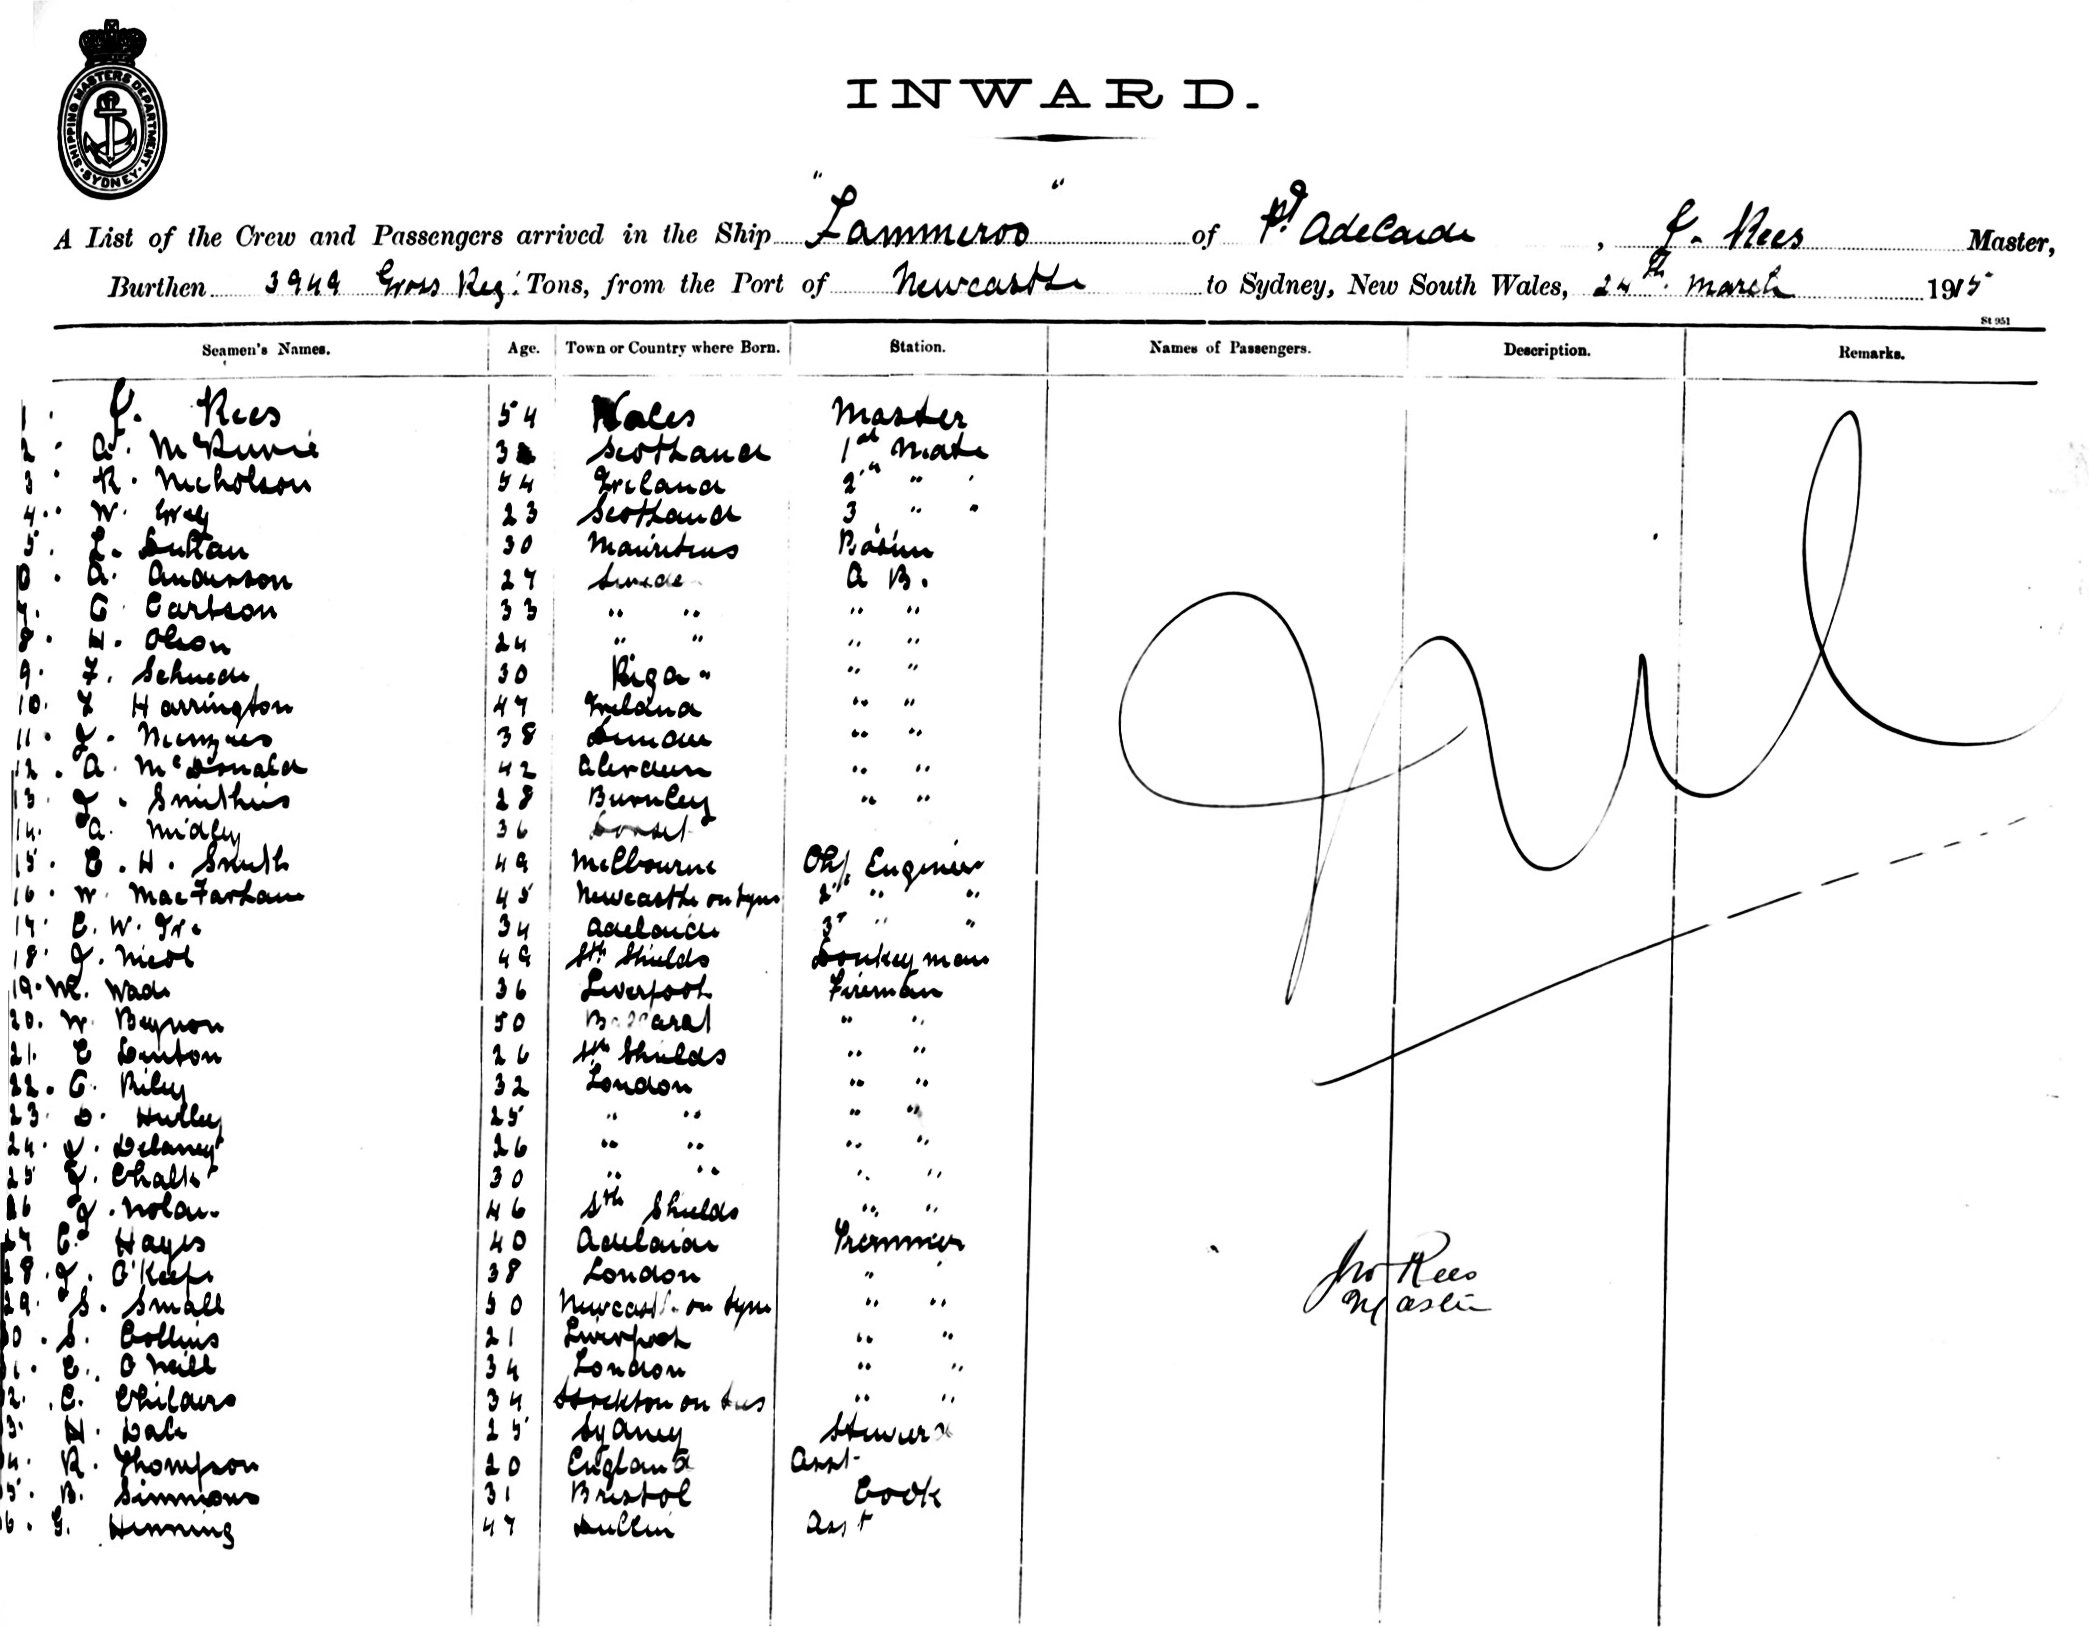 SHIPPING MASTERS DEPARTMENT. SYDNEY.
INWARD.
A List of the Crew and Passengers arrived in the Ship "Lammeroo" of Pt Adelaide, J. Rees Master,
Burthen 3949 Gross Reg. Tons, from the Port of Newcastle to Sydney, New South Wales, 24th March 1915
St 951
Seamen's Names. Age. Town or Country where Born. Station. Names of Passengers. Description. Remarks.
1. J. Rees 54 Wales Master
2. A. McRuvie Scotland 1st Mate
3. R. Nicholson 54 Ireland 2nd "
4. W. Grey 23 Scotland 3 " "
5. L. Sultan 30 Mauritius Bosun
6. A. Anderson 27 Swede A B.
7. C Carlson 33 " " " "
8. H. Olson 24 " " " "
9. F. 30 Riga " " "
10. J Harrington 47 Ireland " "
11. J. Menzies 38 Dundee " "
12. A. McDonald 42 Aberdeen " "
13. J. Smithies 28 Burnley " "
14. A. Midgley 36 Dorset
15. C. H. Smith 49 Melbourne Chf Engineer
16. W. MacFarlane 45 Newcastle on Tyne 2nd " "
17. C. W. 34 Adelaide 3r " "
18. J. Nicol 49 Sth Shields Donkeyman
19. Wm. Wade 36 Liverpool Fireman
20. W. Beynon 50 Ballarat " "
21. C Linton 26 Sth Shields " "
22. C. Riley 32 London " "
23. D. Hulley 25 " " " "
24. J. Delaney 26 " " " "
25 J. Chalk 30 " " " "
26 J. Nolan 46 Sth Shields " "
27 C. Hayes 40 Adelaide Tremmer
28. J. O'Keefe 38 London " "
29. S. Small 50 Newcastle on Tyne " "
30. S. Collins 21 Liverpool " "
31. C. O'Neill 34 London " "
32. C. Childers 34 Stockton on Tees " "
33. H. Dale 25 Sydney Steward
34. R. Thompson 20 England Asst
35. B. Simmons 31 Bristol Cook
36. G. Henning 47 Dublin Asst
Nil
Jno Rees
Master